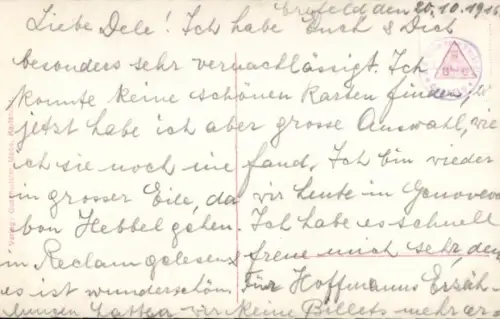 Crefeld den 20.10.1916
Liebe Dele! Ich habe Euch & Dich
besonders sehr vernachlässigt. Ich
konnte keine schönen Karten finden,
jetzt habe ich aber grosse Auswahl, wie
ich sie noch nie fand. Ich bin wieder
in grosser Eile, da wir heute in Genoveva
von Hebbel gehen. Ich habe es schnell
in Reclam gelesen & freue mich sehr, denn
es ist wunderschön. Für Hoffmanns Erzäh-
lungen hatten wir keine Billets mehr er-